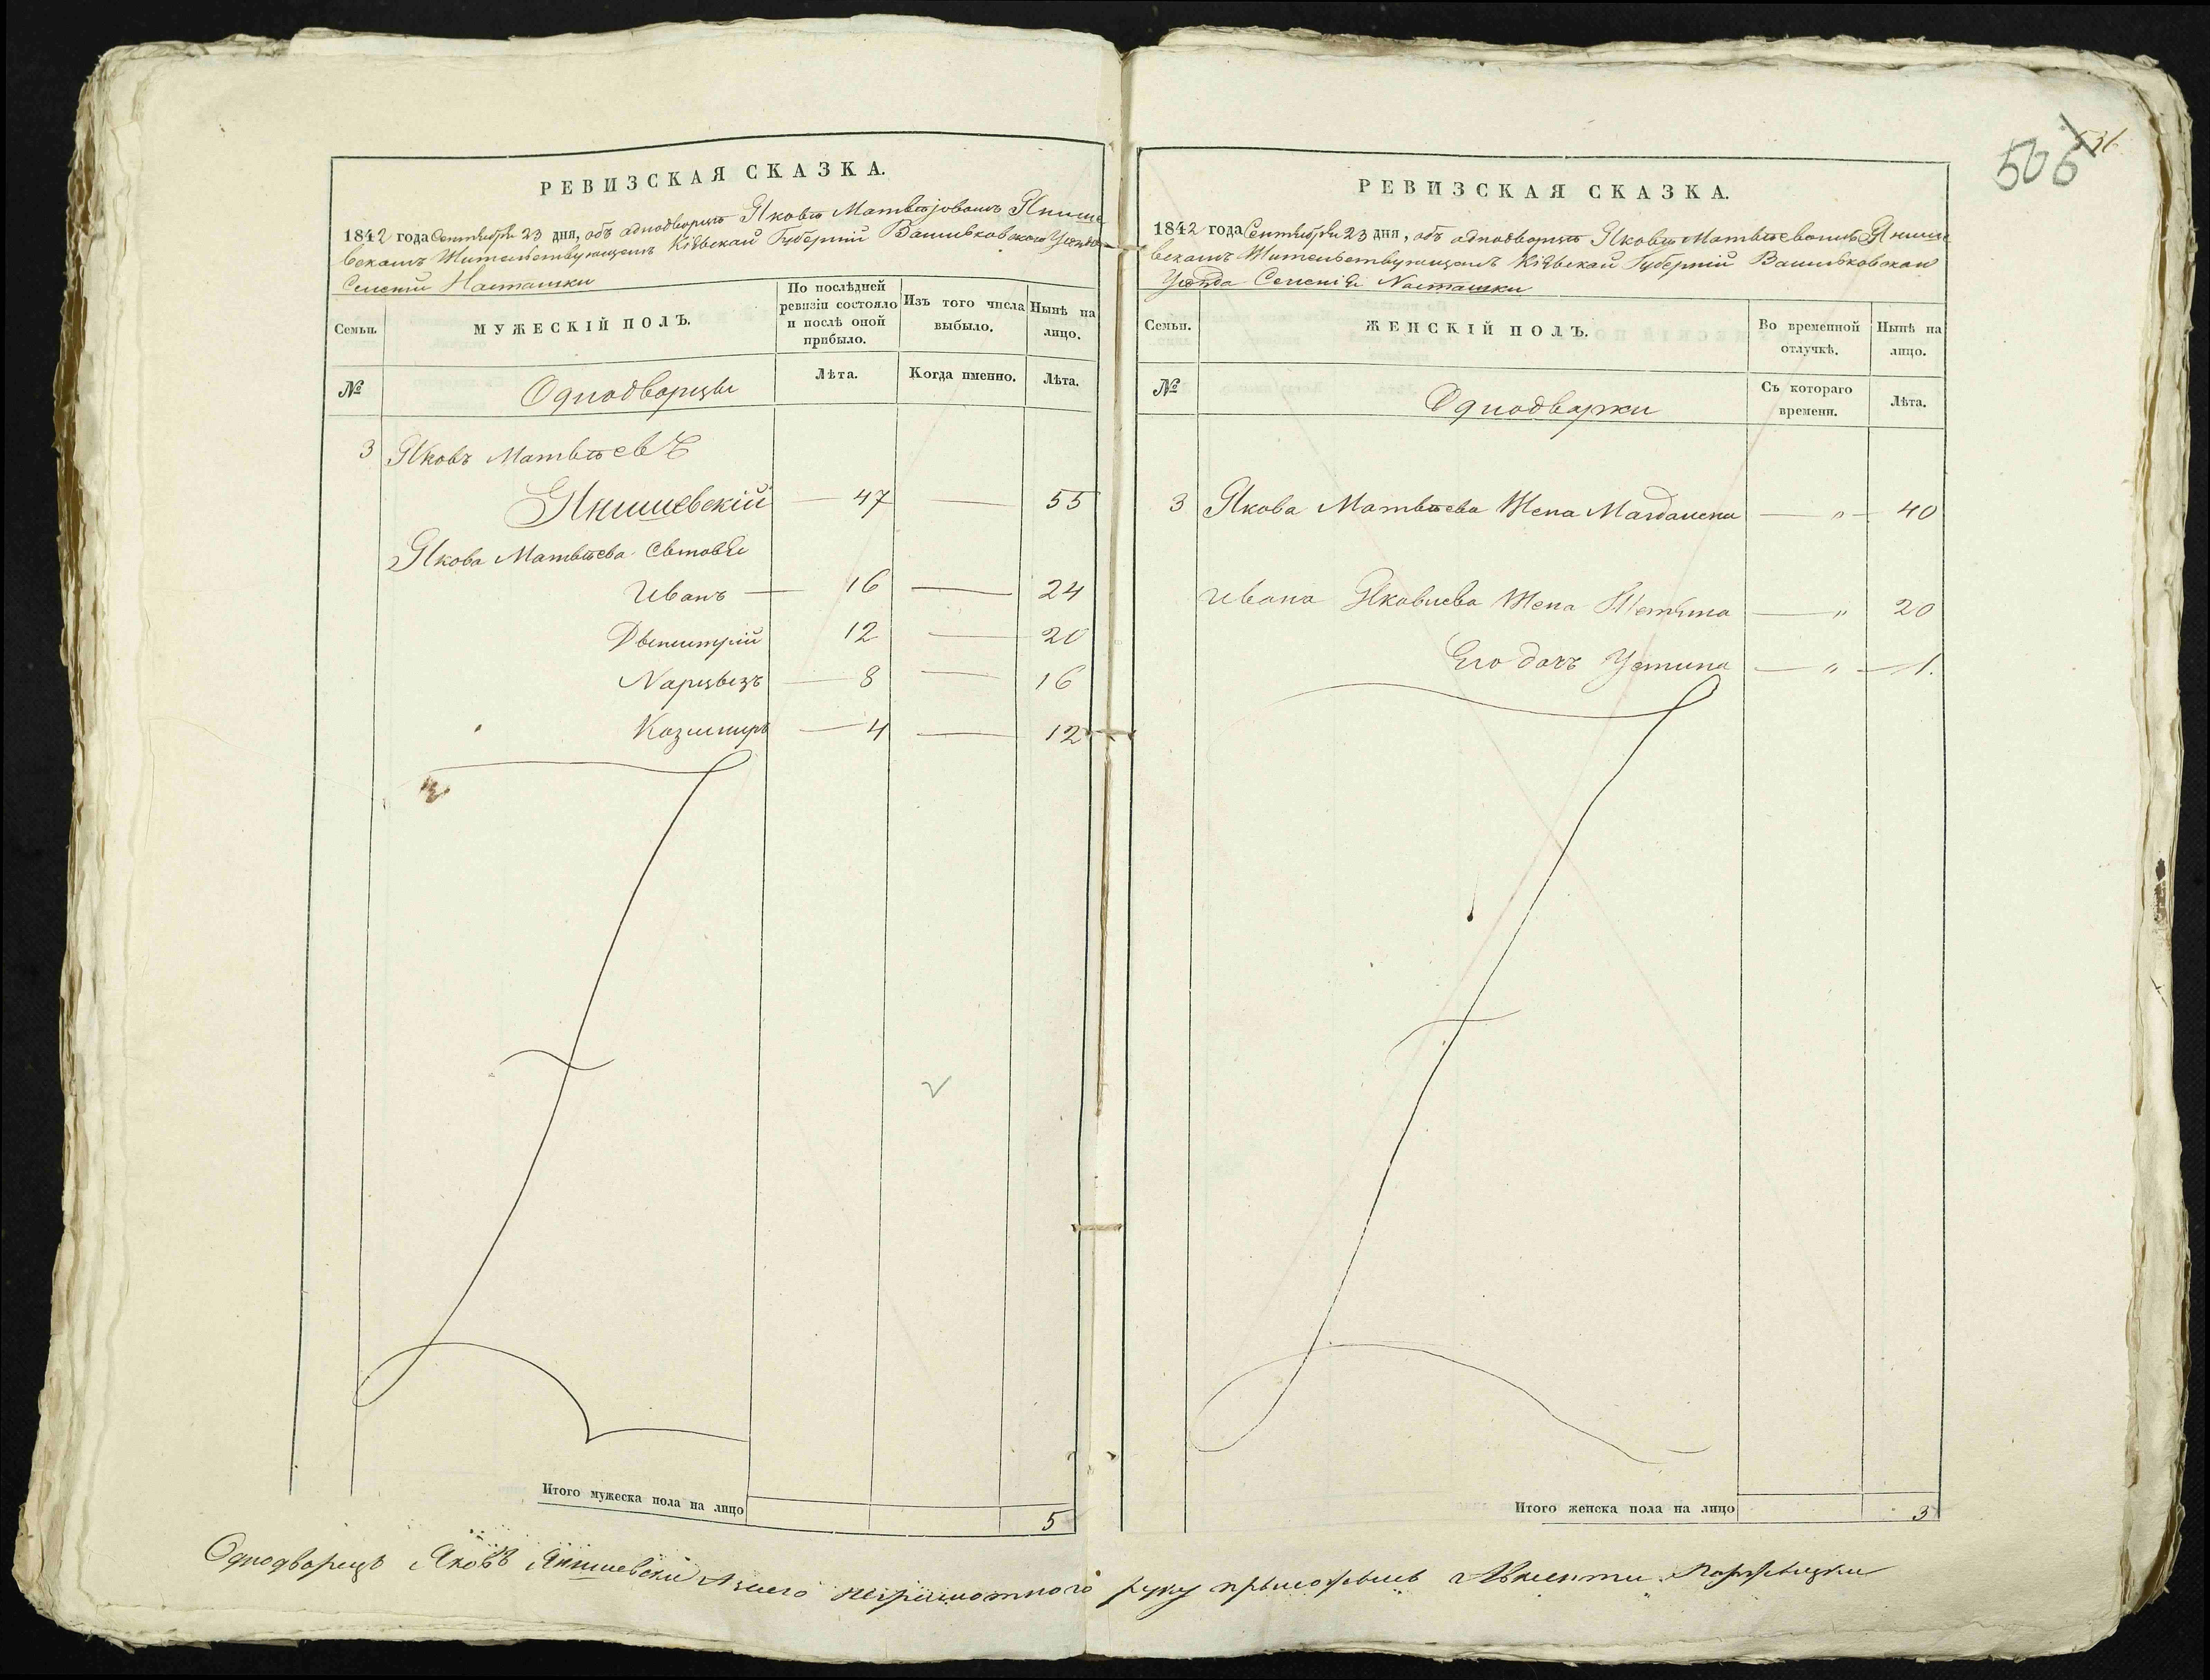 РЕВИЗСКАЯ СКАЗКА.
1842 года Сентября 23 дня, объ аднодворцѣ Яковѣ Матвѣјовомъ Янише
вскомъ Жительствующемъ Кіевскай Губерніи Васильковскаго Уезда
Селенiи Насташки
Семьи.
МУЖЕСКІЙ ПОЛЪ.
По послѣдней ревизіи состояло и послѣ оной прибыло.
Изъ того числа выбыло.
Нынѣ на лицо.
№
Однодворцы
Лѣта.
Когда именно.
Лѣта.
3 Яковъ Матвѣевъ
Янишевскій — 47 — 55
Якова Матвѣева Сыновье
Иванъ — 16 — 24
Дымитрій 12 — 20
Нарцызъ — 8 — 16
Казимиръ — 4 — 12
Итого мужеска пола на лицо 5
506
РЕВИЗСКАЯ СКАЗКА.
1842 года Сентября 23 дня, объ аднодворцѣ Яковѣ Матвѣевомъ Янише
вскомъ Жительствующемъ Кіевскай Губерніи Васильковскаи
Уезда Селеніи Насташки
Семьи.
ЖЕНСКІЙ ПОЛЪ.
Во временной отлучкѣ.
Нынѣ на лицо.
№
Однодварки
Съ котораго времени.
Лѣта.
3 Якова Матвѣева Жена Магдалена — „ — 40
Ивана Яковлева Жена — „ 20
Его дочъ Устина — „ — 1.
Итого женска пола на лицо 3
Однодворецъ Яковъ Янишевски неграмотного руку прыложылъ